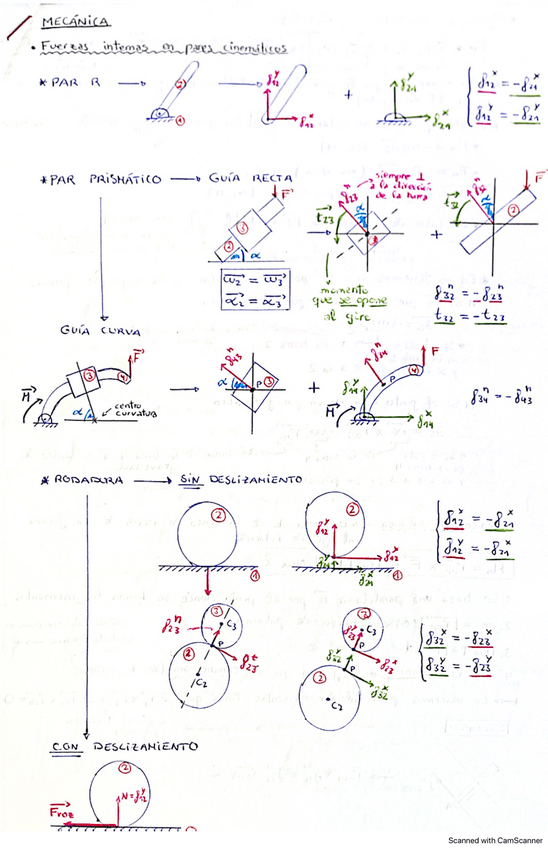 MECÁNICA
• Fuerzas internas en pares cinemáticos
* PAR R
②
①
f12^y
f12^x
+
f21^y
f21^x
f12^x = -f21^x
f12^y = -f21^y
* PAR PRISMÁTICO → GUÍA RECTA
siempre ⊥
a la dirección
de la barra
F
③
②
α
f23^n
t23
α
③
+
t32
f32^n
α
②
F
ω2 = ω3
α2 = α3
momento
que se opone
al giro
f32^n = -f23^n
t32 = -t23
GUÍA CURVA
M
③
④
F
α
centro
curvatura
f43^n
α
P
③
+
f34^n
P
④
F
f14^y
M
f14^x
f34^n = -f43^n
* RODADURA → SIN DESLIZAMIENTO
②
①
②
f12^y
f12^x
f21^y
f21^x
①
f12^x = -f21^x
f12^y = -f21^y
③
C3
f23^n
P
f23^t
②
C2
③
C3
f23^y
P
f23^x
f32^y
P
f32^x
②
C2
f32^x = -f23^x
f32^y = -f23^y
CON DESLIZAMIENTO
②
N = f12^y
Froz
Scanned with CamScanner